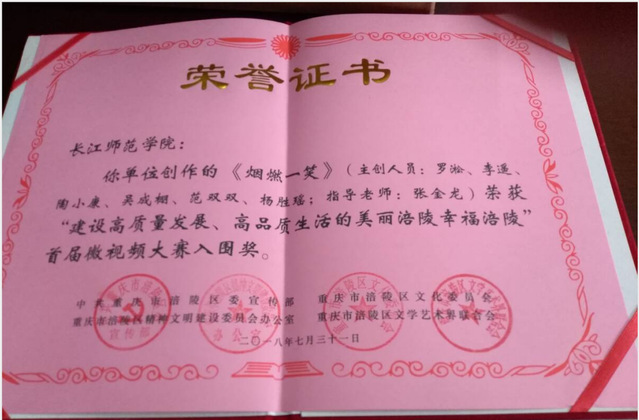 荣誉证书
长江师范学院：
你单位创作的《烟燃一笑》（主创人员：罗淞、李遥、
陶小康、吴成棚、范双双、杨胜瑶；指导老师：张金龙）荣获
“建设高质量发展、高品质生活的美丽涪陵幸福涪陵”
首届微视频大赛入围奖。
中共重庆市涪陵区委宣传部 重庆市涪陵区文化委员会
重庆市涪陵区精神文明建设委员会办公室 重庆市涪陵区文学艺术界联合会
二〇一八年七月三十一日